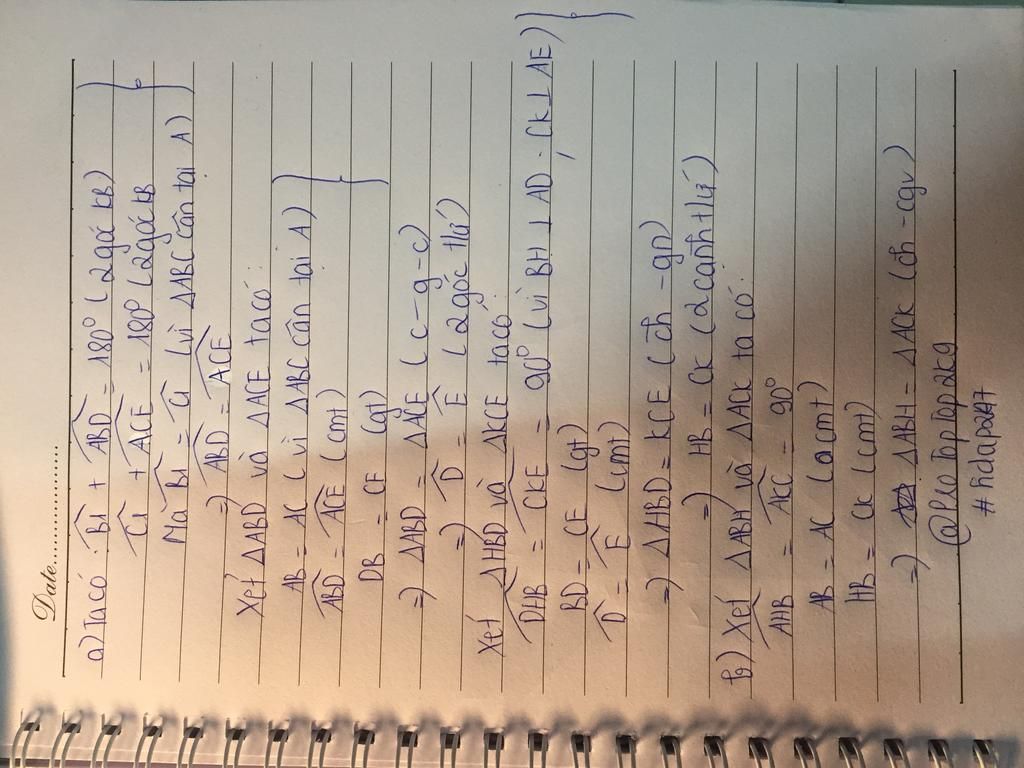 Date.....................
a) Ta có: B̂1 + ABD̂ = 180° (2 góc kB)
Ĉ1 + ACÊ = 180° (2 góc kB
Mà B̂1 = Ĉ1 (vì ΔABC cân tại A)
=) ABD̂ = ACÊ
Xét ΔABD và ΔACE ta có:
AB = AC (vì ΔABC cân tại A)
ABD̂ = ACÊ (cmt)
DB = CE (gt)
=) ΔABD = ΔACE (c-g-c)
=) D̂ = Ê (2 góc t/ứ)
Xét ΔHBD và ΔKCE ta có:
DHB̂ = CKÊ = 90° (vì BH ⊥ AD, CK ⊥ AE)
BD = CE (gt)
D̂ = Ê (cmt)
=) ΔHBD = KCE (ch-gn)
=) HB = CK (2 cạnh t/ứ)
b) Xét ΔABH và ΔACK ta có:
AHB̂ = AKĈ = 90°
AB = AC (acmt)
HB = CK (cmt)
=) ΔABH = ΔACK (ch-cgv)
@ProTopTop2k9
#hidap247